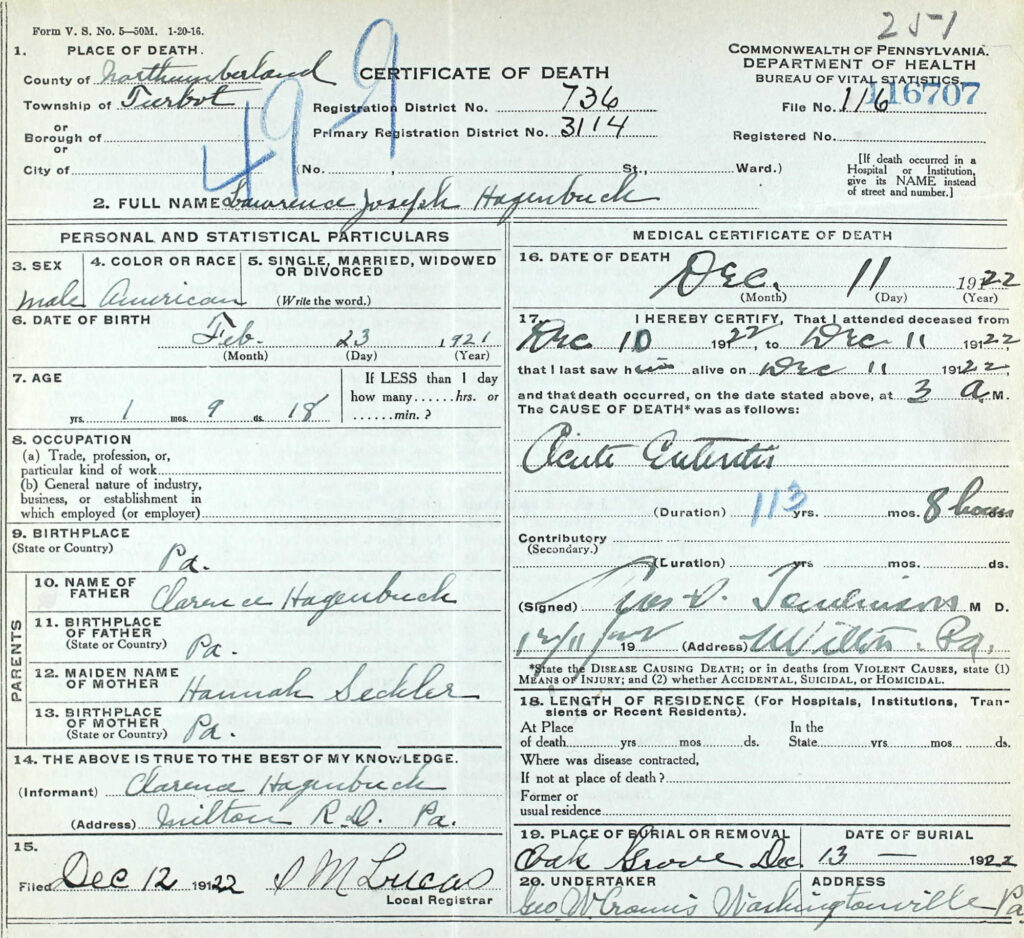 251
Form V. S. No. 5—50M. 1-20-16.
1. PLACE OF DEATH.
County of Northumberland
Township of Turbot
or
Borough of
or
City of
CERTIFICATE OF DEATH
499
Registration District No. 736
Primary Registration District No. 3114
(No. , St., Ward.)
COMMONWEALTH OF PENNSYLVANIA.
DEPARTMENT OF HEALTH
BUREAU OF VITAL STATISTICS.
File No. 116 116707
Registered No.
[If death occurred in a
Hospital or Institution,
give its NAME instead
of street and number.]
2. FULL NAME Lawrence Joseph Hagenbuch
PERSONAL AND STATISTICAL PARTICULARS
3. SEX
male
4. COLOR OR RACE
American
5. SINGLE, MARRIED, WIDOWED
OR DIVORCED
(Write the word.)
6. DATE OF BIRTH
Feb. 23 1921
(Month) (Day) (Year)
7. AGE
1 yrs. 9 mos. 18 ds.
If LESS than 1 day
how many......hrs. or
......min.?
8. OCCUPATION
(a) Trade, profession, or,
particular kind of work
(b) General nature of industry,
business, or establishment in
which employed (or employer)
9. BIRTHPLACE
(State or Country)
Pa.
PARENTS
10. NAME OF
FATHER
Clarence Hagenbuch
11. BIRTHPLACE
OF FATHER
(State or Country)
Pa.
12. MAIDEN NAME
OF MOTHER
Hannah Seckler
13. BIRTHPLACE
OF MOTHER
(State or Country)
Pa.
14. THE ABOVE IS TRUE TO THE BEST OF MY KNOWLEDGE.
(Informant) Clarence Hagenbuch
(Address) Milton R.D. Pa.
15.
Filed Dec 12 1922 S M Lucas
Local Registrar
MEDICAL CERTIFICATE OF DEATH
16. DATE OF DEATH
Dec. 11 1922
(Month) (Day) (Year)
17. I HEREBY CERTIFY, That I attended deceased from
Dec 10 1922, to Dec 11 1922,
that I last saw him alive on Dec 11 1922,
and that death occurred, on the date stated above, at 3 A.M.
The CAUSE OF DEATH* was as follows:
Acute Enteritis
(Duration) 113 yrs. mos. 8 hours ds.
Contributory
(Secondary.)
(Duration) yrs mos. ds.
(Signed) Tomlinson M D.
12/11/22 19 (Address) Milton. Pa.
*State the DISEASE CAUSING DEATH; or in deaths from VIOLENT CAUSES, state (1)
MEANS OF INJURY; and (2) whether ACCIDENTAL, SUICIDAL, OR HOMICIDAL.
18. LENGTH OF RESIDENCE (For Hospitals, Institutions, Tran-
sients or Recent Residents).
At Place
of death yrs mos ds.
In the
State yrs mos ds.
Where was disease contracted,
If not at place of death?
Former or
usual residence
19. PLACE OF BURIAL OR REMOVAL
Oak Grove
DATE OF BURIAL
Dec. 13 — 1922
20. UNDERTAKER
Geo W Cromis
ADDRESS
Washingtonville Pa